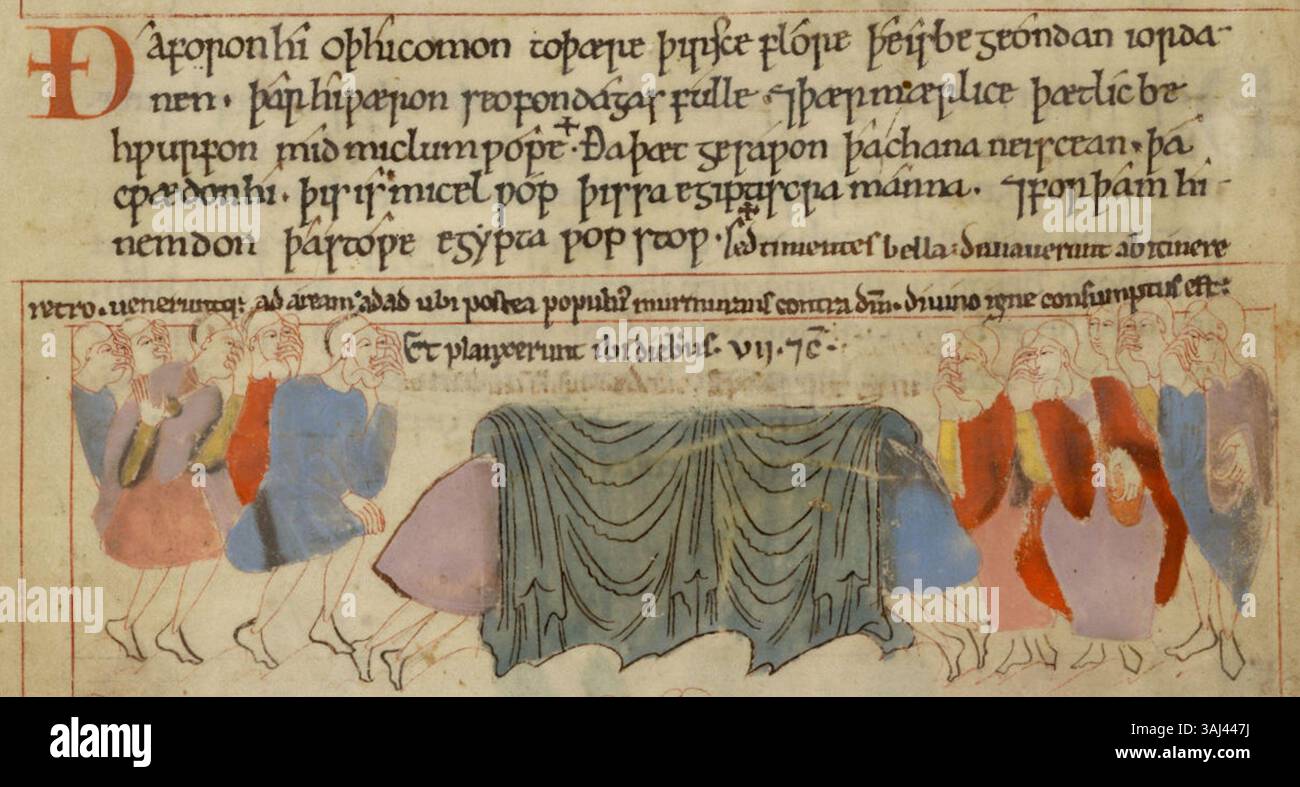 Ða foron hi oþ hi comon to þære þirsce flóre þe is begeondan iorda-
nen · þar hi wæron seofon dagas fulle · ⁊ þær mærlice þæt lic be
hwurfon mid miclum wópe · Ða þæt gesawon þa chananeiscean · þa
cwædon hi · þis is micel wóp þissa egiptiscra manna · ⁊ forþam hi
nemdon þa stówe egypta wop stop · sed timentes bella diuiauerunt ab itinere
retro · ueneruntq; ad aream adad ubi postea populus murmurans contra dm̄ · diuino igne consumptus est ·
Et planxerunt ibi diebus · vii · ⁊c̄ ·
alamy
alamy
Image ID: 3AJ447J
www.alamy.com